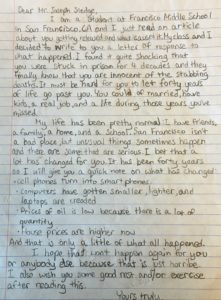 Dear Mr. Joseph Sledge,
I am a student at Francisco Middle School
in San Francisco, CA and I just read an article
about you getting released and what
decided to write to you a letter of response to
what happened. I found it quite shocking that
you were stuck in prison for 4 decades and they
finally know that you are innocent of the stabbing
deaths. It must be hard for you to let forty years
of life go past. You could of married, have
kids, a real job, and a life during those years you've
missed.
My life has been pretty normal. I have friends,
a family, a home, and a school. San Francisco isn't
a bad place just unusual things sometimes happen
and there are some that are serious. I bet that a
lot has changed for you. It has been forty years
so I will give you a quick note on what has changed
• Cell phones turn into smart phones.
• Computers have gotten smaller, lighter, and
laptops are created
• Prices of oil is low because there is a lot of
quantity
• House prices are higher now
And that is only a little of what all happened.
I hope that won't happen again for you
or anybody else because that is just horrible.
I also wish you some good rest and/or exercise
after reading this.
Yours truly